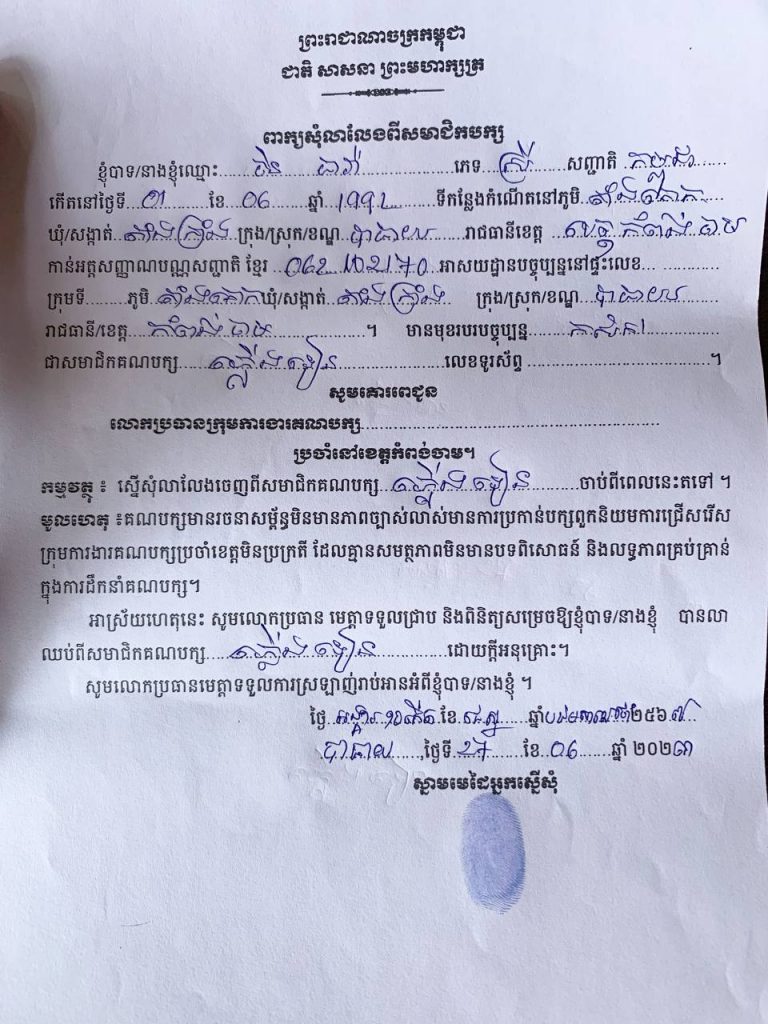 ព្រះរាជាណាចក្រកម្ពុជា
ជាតិ សាសនា ព្រះមហាក្សត្រ
ពាក្យសុំលាលែងពីសមាជិកបក្ស
ខ្ញុំបាទ/នាងខ្ញុំឈ្មោះ...............ភេទ...ស្រី...សញ្ជាតិ...កម្ពុជា...
កើតនៅថ្ងៃទី...01...ខែ...06...ឆ្នាំ...1992...ទីកន្លែងកំណើតនៅភូមិ...
ឃុំ/សង្កាត់...តាំងក្រាំង...ក្រុង/ស្រុក/ខណ្ឌ...បាធាយ...រាជធានីខេត្ត...ខេត្តកំពង់ចាម
កាន់អត្តសញ្ញាណបណ្ណសញ្ជាតិ ខ្មែរ...062102170...អាសយដ្ឋានបច្ចុប្បន្ននៅផ្ទះលេខ...
ក្រុមទី......ភូមិ...ឃុំ/សង្កាត់...តាំងក្រាំង...ក្រុង/ស្រុក/ខណ្ឌ...បាធាយ...
រាជធានី/ខេត្ត...កំពង់ចាម...។ មានមុខរបរបច្ចុប្បន្ន...កសិករ...
ជាសមាជិកគណបក្ស...ភ្លើងទៀន...លេខទូរស័ព្ទ...............។
សូមគោរពជូន
លោកប្រធានក្រុមការងារគណបក្ស...............
ប្រចាំនៅខេត្តកំពង់ចាម។
កម្មវត្ថុ ៖ ស្នើសុំលាលែងចេញពីសមាជិកគណបក្ស...ភ្លើងទៀន...ចាប់ពីពេលនេះតទៅ ។
មូលហេតុ ៖គណបក្សមានរចនាសម្ព័ន្ធមិនមានភាពច្បាស់លាស់មានការប្រកាន់បក្សពួកនិយមការជ្រើសរើស
ក្រុមការងារគណបក្សប្រចាំខេត្តមិនប្រក្រតី ដែលគ្មានសមត្ថភាពមិនមានបទពិសោធន៍ និងលទ្ធភាពគ្រប់គ្រាន់
ក្នុងការដឹកនាំគណបក្ស។
អាស្រ័យហេតុនេះ សូមលោកប្រធាន មេត្តាទទួលជ្រាប និងពិនិត្យសម្រេចឱ្យខ្ញុំបាទ/នាងខ្ញុំ បានលា
ឈប់ពីសមាជិកគណបក្ស...ភ្លើងទៀន...ដោយក្តីអនុគ្រោះ។
សូមលោកប្រធានមេត្តាទទួលការស្រឡាញ់រាប់អានអំពីខ្ញុំបាទ/នាងខ្ញុំ ។
ថ្ងៃ...អង្គារ ១០កើត...ខែ...ឆ្នាំ...២៥៦៧
បាធាយ...,ថ្ងៃទី...27...ខែ...06...ឆ្នាំ ២០២៣
ស្នាមមេដៃអ្នកស្នើសុំ